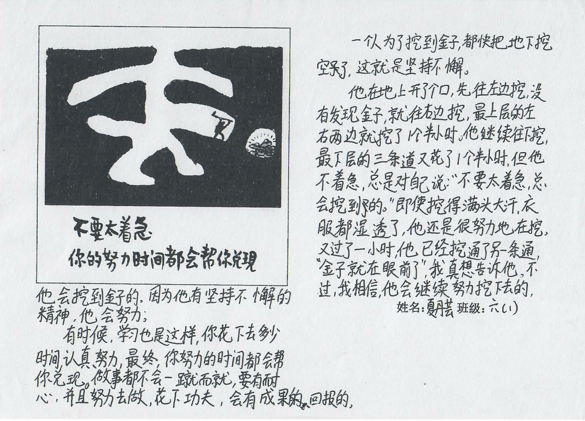 不要太着急
你的努力时间都会帮你兑现
一个人为了挖到金子,都快把地下挖
空了,这就是坚持不懈。
他在地上开了个口,先往左边挖,没
有发现金子,就往右边挖,最上层的左
右两边就挖了1个半小时,他继续往下挖,
最下层的三条道又花了1个半小时,但他
不着急,总是对自己说:“不要太着急,总
会挖到的。”即使挖得满头大汗,衣
服都湿透了,他还是很努力地在挖,
又过了一小时,他已经挖通了另一条通,
“金子就在眼前了”,我真想告诉他,不
过,我相信,他会继续努力挖下去的,
他会挖到金子的,因为他有坚持不懈的
精神,他会努力;
有时候,学习也是这样,你花下去多少
时间认真、努力,最终,你努力的时间都会帮
你兑现。做事都不会一蹴而就,要有耐
心,并且努力去做,花下功夫,会有成果的、回报的。
姓名:夏月芸 班级:六(1)